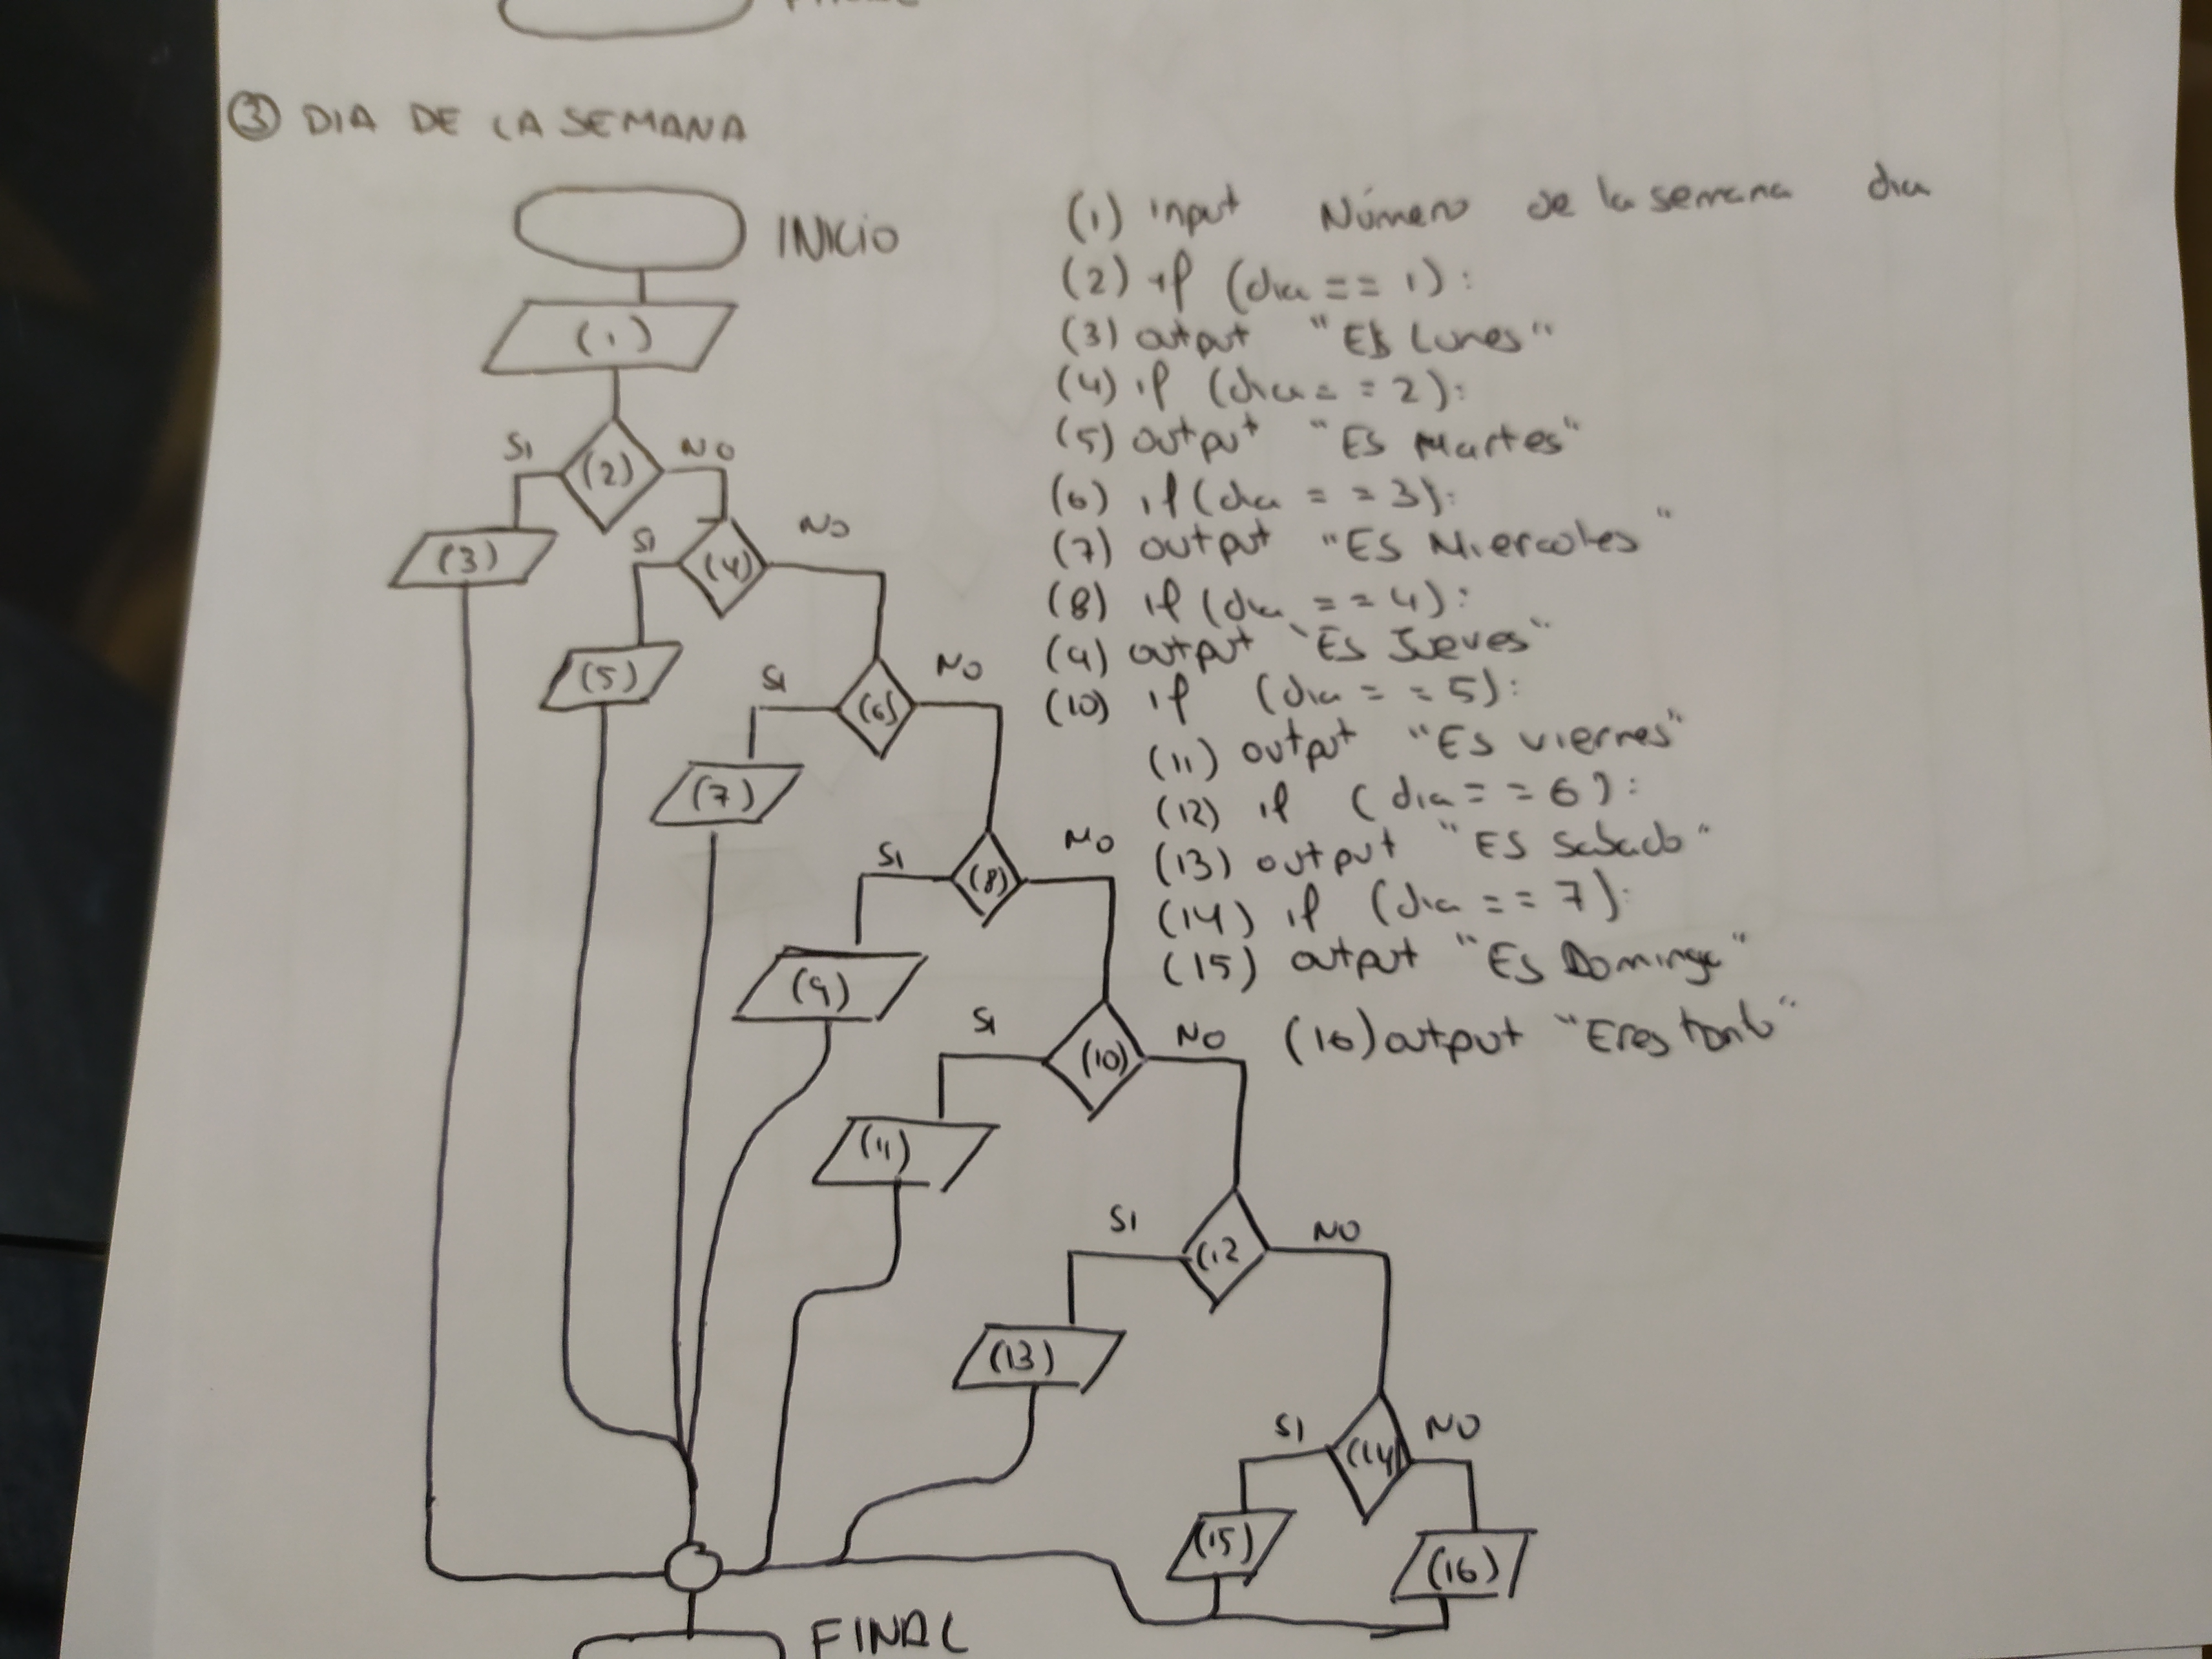 ③ DIA DE LA SEMANA
INICIO
(1)
SI (2) NO
(3)
SI (4) NO
(5)
SI (6) NO
(7)
SI (8) NO
(9)
SI (10) NO
(11)
SI (12 NO
(13)
SI (14) NO
(15)
(16)
FINAL
(1) input Número de la semana dia
(2) if (dia == 1):
(3) output "Es Lunes"
(4) if (dia == 2):
(5) output "Es Martes"
(6) if (dia == 3):
(7) output "Es Miercoles"
(8) if (dia == 4):
(9) output "Es Jueves"
(10) if (dia == 5):
(11) output "Es viernes"
(12) if (dia == 6):
(13) output "Es Sabado"
(14) if (dia == 7):
(15) output "Es Domingo"
(16) output "Eres tonto"